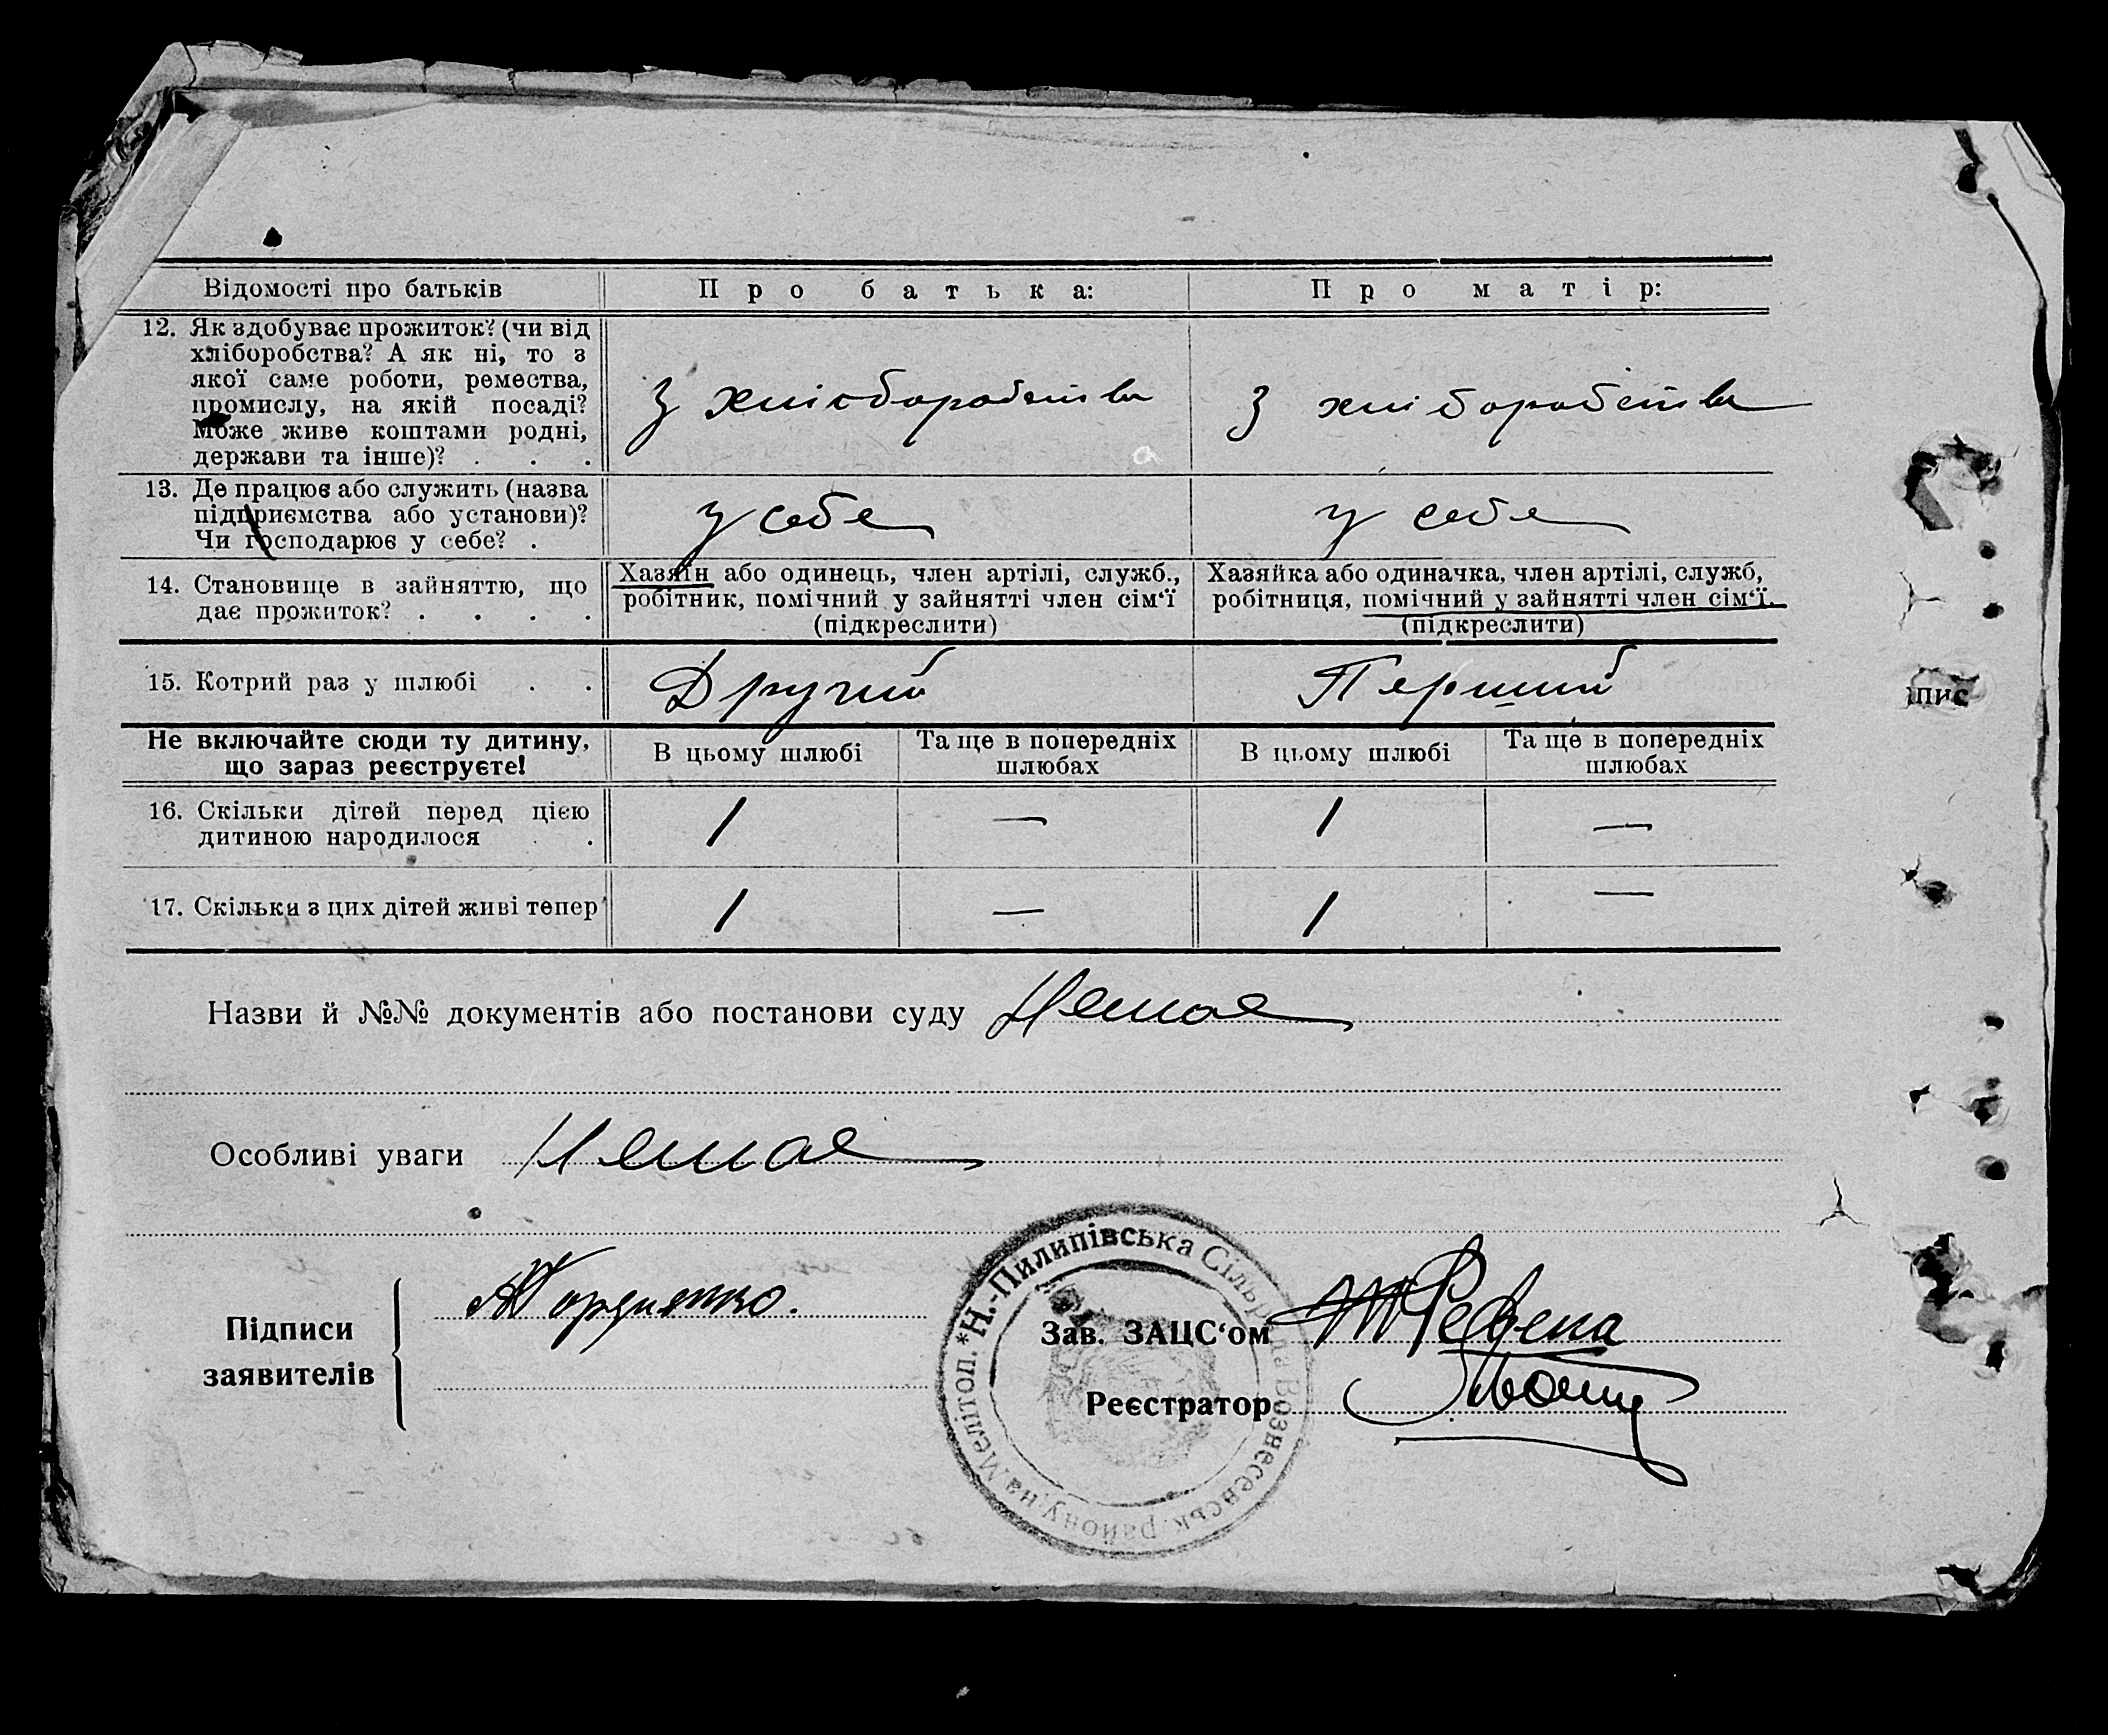 Відомості про батьків
Про батька:
Про матір:
12. Як здобуває прожиток? (чи від
хліборобства? А як ні, то з
якої саме роботи, ремества,
промислу, на якій посаді?
Може живе коштами родні,
держави та інше)? . . .
З хліборобства
З хліборобства
13. Де працює або служить (назва
підприємства або установи)?
Чи господарює у себе? .
у себе
у себе
14. Становище в зайняттю, що
дає прожиток? . . . .
Хазяїн або одинець, член артілі, служб.,
робітник, помічний у зайнятті член сім‘ї
(підкреслити)
Хазяйка або одиначка, член артілі, служб,
робітниця, помічний у зайнятті член сім‘ї.
(підкреслити)
15. Котрий раз у шлюбі . .
Другий
Перший
Не включайте сюди ту дитину,
що зараз реєструєте!
В цьому шлюбі
Та ще в попередніх
шлюбах
В цьому шлюбі
Та ще в попередніх
шлюбах
16. Скільки дітей перед цією
дитиною народилося .
1 — 1 —
17. Скільки з цих дітей живі тепер
1 — 1 —
Назви й №№ документів або постанови суду Немає
Особливі уваги Немає
Підписи
заявителів
Гордиенко.
Зав. ЗАЦС‘ом
Реєстратор
*Н.-Пилипівська Сільрада Вознесенськ. району, на Мелітоп.
пис